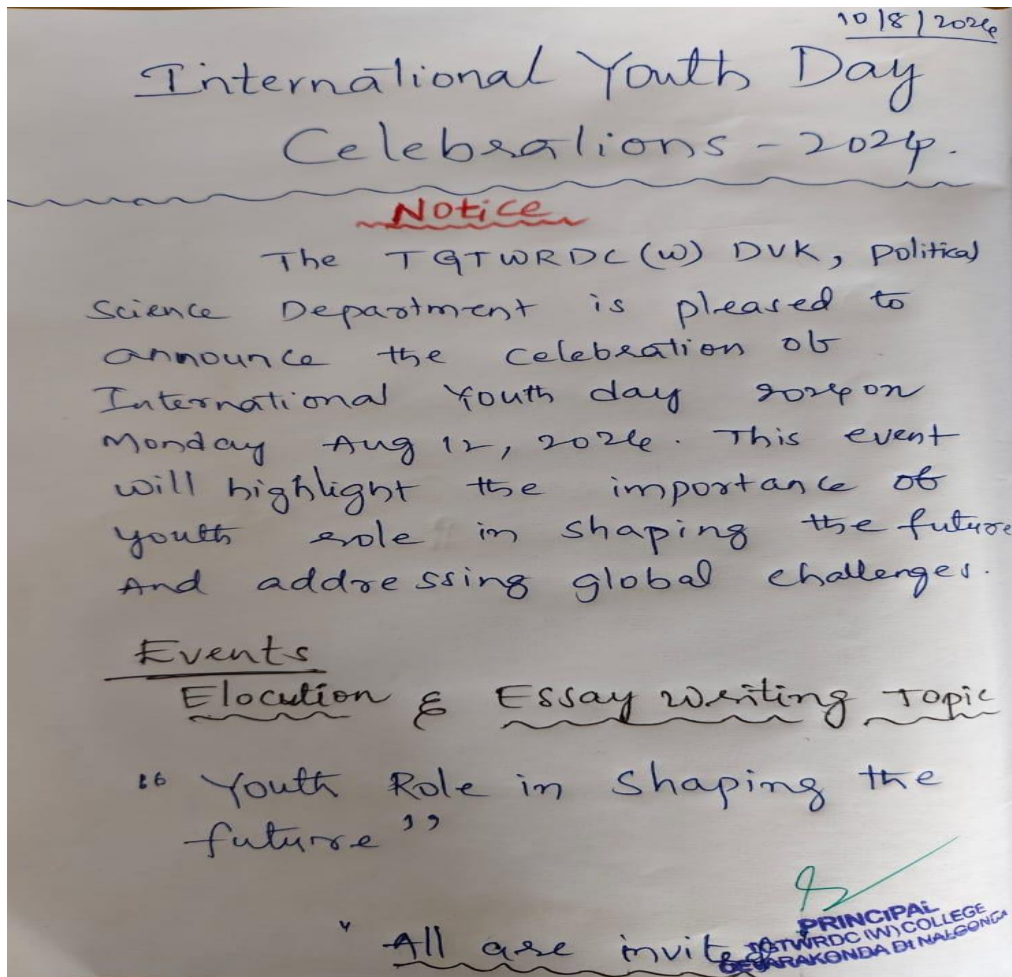 10/8/2024
International Youth Day
Celebrations - 2024.
Notice
The TGTWRDC (W) DVK, Political
Science Department is pleased to
announce the celebration of
International Youth day 2024 on
Monday Aug 12, 2024. This event
will highlight the importance of
youth role in shaping the future
And addressing global challenges.
Events
Elocution & Essay Writing Topic
"Youth Role in Shaping the
future"
"All are invited"
PRINCIPAL
TGTWRDC (W) COLLEGE
DEVARAKONDA Dt NALGONGA